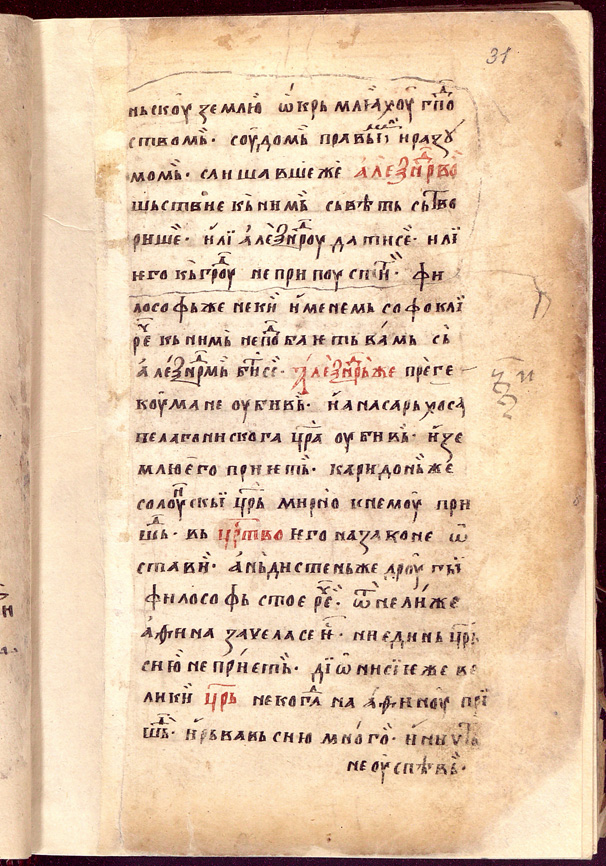 31
ньскоу землю ѡкрьмлꙗхоу гпⷣо
ствомь · соудомь правьⷣнимь и разꙋ
момь · слишавше же алеѯⷣнрѡво
шьствїе кь нимь сьвѣть сьтво
рише · или алеѯⷣнроу дати се · или
ѥго кь граⷣоу не припоустити · фи
лософь же неки именемь софоклї
реⷱ кь нимь не поⷣбаѥть вамь сь
алеѯⷣнромь бити се · алеѯⷣнрь же прѣге
коумана оубивь · и анасарьхоса
пелагонискога цра оубивь · и зе
млю ѥго приѥть · каридонь же
солоуⷩскїи црь мирно к нѥмоу при
шⷣь · вь цртво ѥго на законе ѡ
стави · аньдистень же дроугїи
философь стое реⷱ · ѿнелиже
афина зачела се ѥⷭ · ни единь црь
сию не приѥть · дїѡнисїѥ же ве
лики црь некогⷣа на афиноу прї
шⷣь · и рьвавь сию много · и ничтⷪ
не оуспѣвь ·